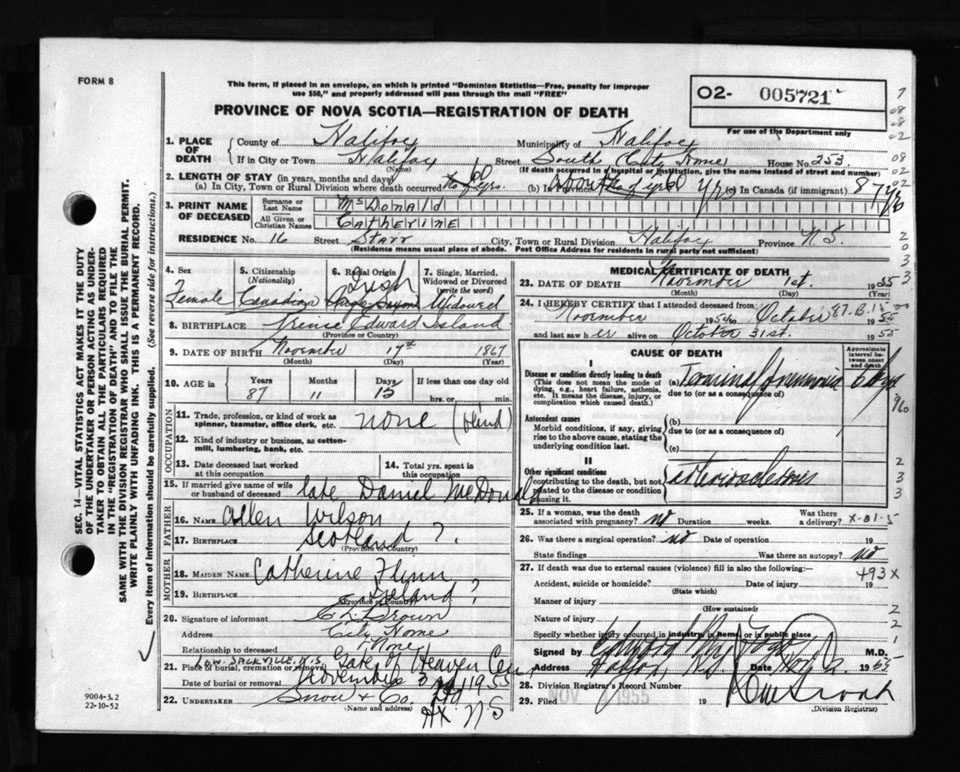 FORM 8
This form, if placed in an envelope, on which is printed "Dominion Statistics—Free, penalty for improper
use $50," and properly addressed will pass through the mail "FREE"
PROVINCE OF NOVA SCOTIA—REGISTRATION OF DEATH
O2- 005721
For use of the Department only
1. PLACE OF DEATH
County of Halifax Municipality of Halifax
If in City or Town Halifax Street South (City Home) House No. 253
(Name) (If death occurred in a hospital or institution, give the name instead of street and number)
2. LENGTH OF STAY (in years, months and days)
(a) In City, Town or Rural Division where death occurred yrs. (b) In yrs (c) In Canada (if immigrant) 87 yrs
3. PRINT NAME OF DECEASED
Surname or Last Name McDonald
All Given or Christian Names Catherine
RESIDENCE No. 16 Street Starr City, Town or Rural Division Halifax Province N.S.
(Residence means usual place of abode. Post Office Address for residents in rural parts not sufficient)
4. Sex Female
5. Citizenship (Nationality) Canadian
6. Racial Origin Irish
7. Single, Married, Widowed or Divorced (write the word) Widowed
8. BIRTHPLACE Prince Edward Island
(Province or Country)
9. DATE OF BIRTH November 17th 1867
(Month) (Day) (Year)
10. AGE in Years 87 Months 11 Days 15 If less than one day old
hrs. or min.
OCCUPATION
11. Trade, profession, or kind of work as spinner, teamster, office clerk, etc. none (blind)
12. Kind of industry or business, as cotton-mill, lumbering, bank, etc.
13. Date deceased last worked at this occupation
14. Total yrs. spent in this occupation
15. If married give name of wife or husband of deceased late Daniel McDonald
FATHER
16. NAME Allen Wilson
17. BIRTHPLACE Scotland ?
(Province or Country)
MOTHER
18. MAIDEN NAME Catherine Flynn
19. BIRTHPLACE Ireland ?
(Province or Country)
20. Signature of informant Brown
Address City Home
Relationship to deceased None
21. Place of burial, cremation or removal LOW. SACKVILLE, N.S. Gate of Heaven Cem
Date of burial or removal November 3rd 1955
22. UNDERTAKER Snow & Co. Ltd
(Name and address) HX. NS
MEDICAL CERTIFICATE OF DEATH
23. DATE OF DEATH November 1st. 1955
(Month) (Day)
24. I HEREBY CERTIFY that I attended deceased from:
November 1954 to October 1955
87-B.15
and last saw her alive on October 31st. 1955
CAUSE OF DEATH
Approximate interval between onset and death
I
Disease or condition directly leading to death
(This does not mean the mode of dying, e.g., heart failure, asthenia, etc. It means the disease, injury, or complication which caused death.)
(a) Terminal pneumonia 6 days
due to (or as a consequence of)
Antecedent causes
Morbid conditions, if any, giving rise to the above cause, stating the underlying condition last.
(b)
due to (or as a consequence of)
(c)
II
Other significant conditions
contributing to the death, but not related to the disease or condition causing it.
arteriosclerosis
25. If a woman, was the death associated with pregnancy? no Duration weeks. Was there a delivery? X-01-5
26. Was there a surgical operation? no Date of operation 19
State findings Was there an autopsy? no
27. If death was due to external causes (violence) fill in also the following:— 493X
Accident, suicide or homicide? Date of injury 19
(State which)
Manner of injury
(How sustained)
Nature of injury
Specify whether injury occurred in industry, in home, or in public place
Signed by M.D.
Address Halifax, N.S. Date Nov 2 1955
28. Division Registrar's Record Number
29. Filed NOV 1955 19
(Division Registrar)
SEC. 14—VITAL STATISTICS ACT MAKES IT THE DUTY
OF THE UNDERTAKER OR PERSON ACTING AS UNDER-
TAKER TO OBTAIN ALL THE PARTICULARS REQUIRED
IN THE "REGISTRATION OF DEATH" AND TO FILE THE
SAME WITH THE DIVISION REGISTRAR WHO SHALL ISSUE THE BURIAL PERMIT.
WRITE PLAINLY WITH UNFADING INK. THIS IS A PERMANENT RECORD.
Every item of information should be carefully supplied. (See reverse side for instructions.)
9004-3.2
22-10-52